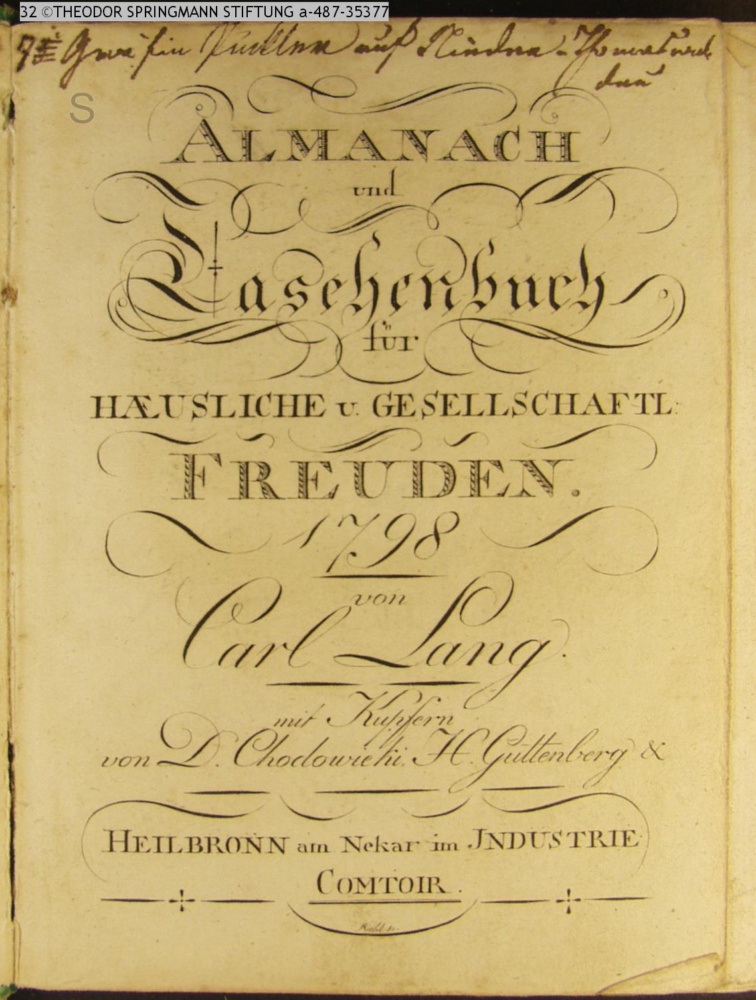 32 ©THEODOR SPRINGMANN STIFTUNG a-487-35377
Gräfin auf
S
ALMANACH
und
Taschenbuch
für
HÆUSLICHE u. GESELLSCHAFTL:
FREUDEN.
1798
von
Carl Lang.
mit Kupfern
von D. Chodowieki. H. Guttenberg &
HEILBRONN am Nekar im JNDUSTRIE
COMTOIR.